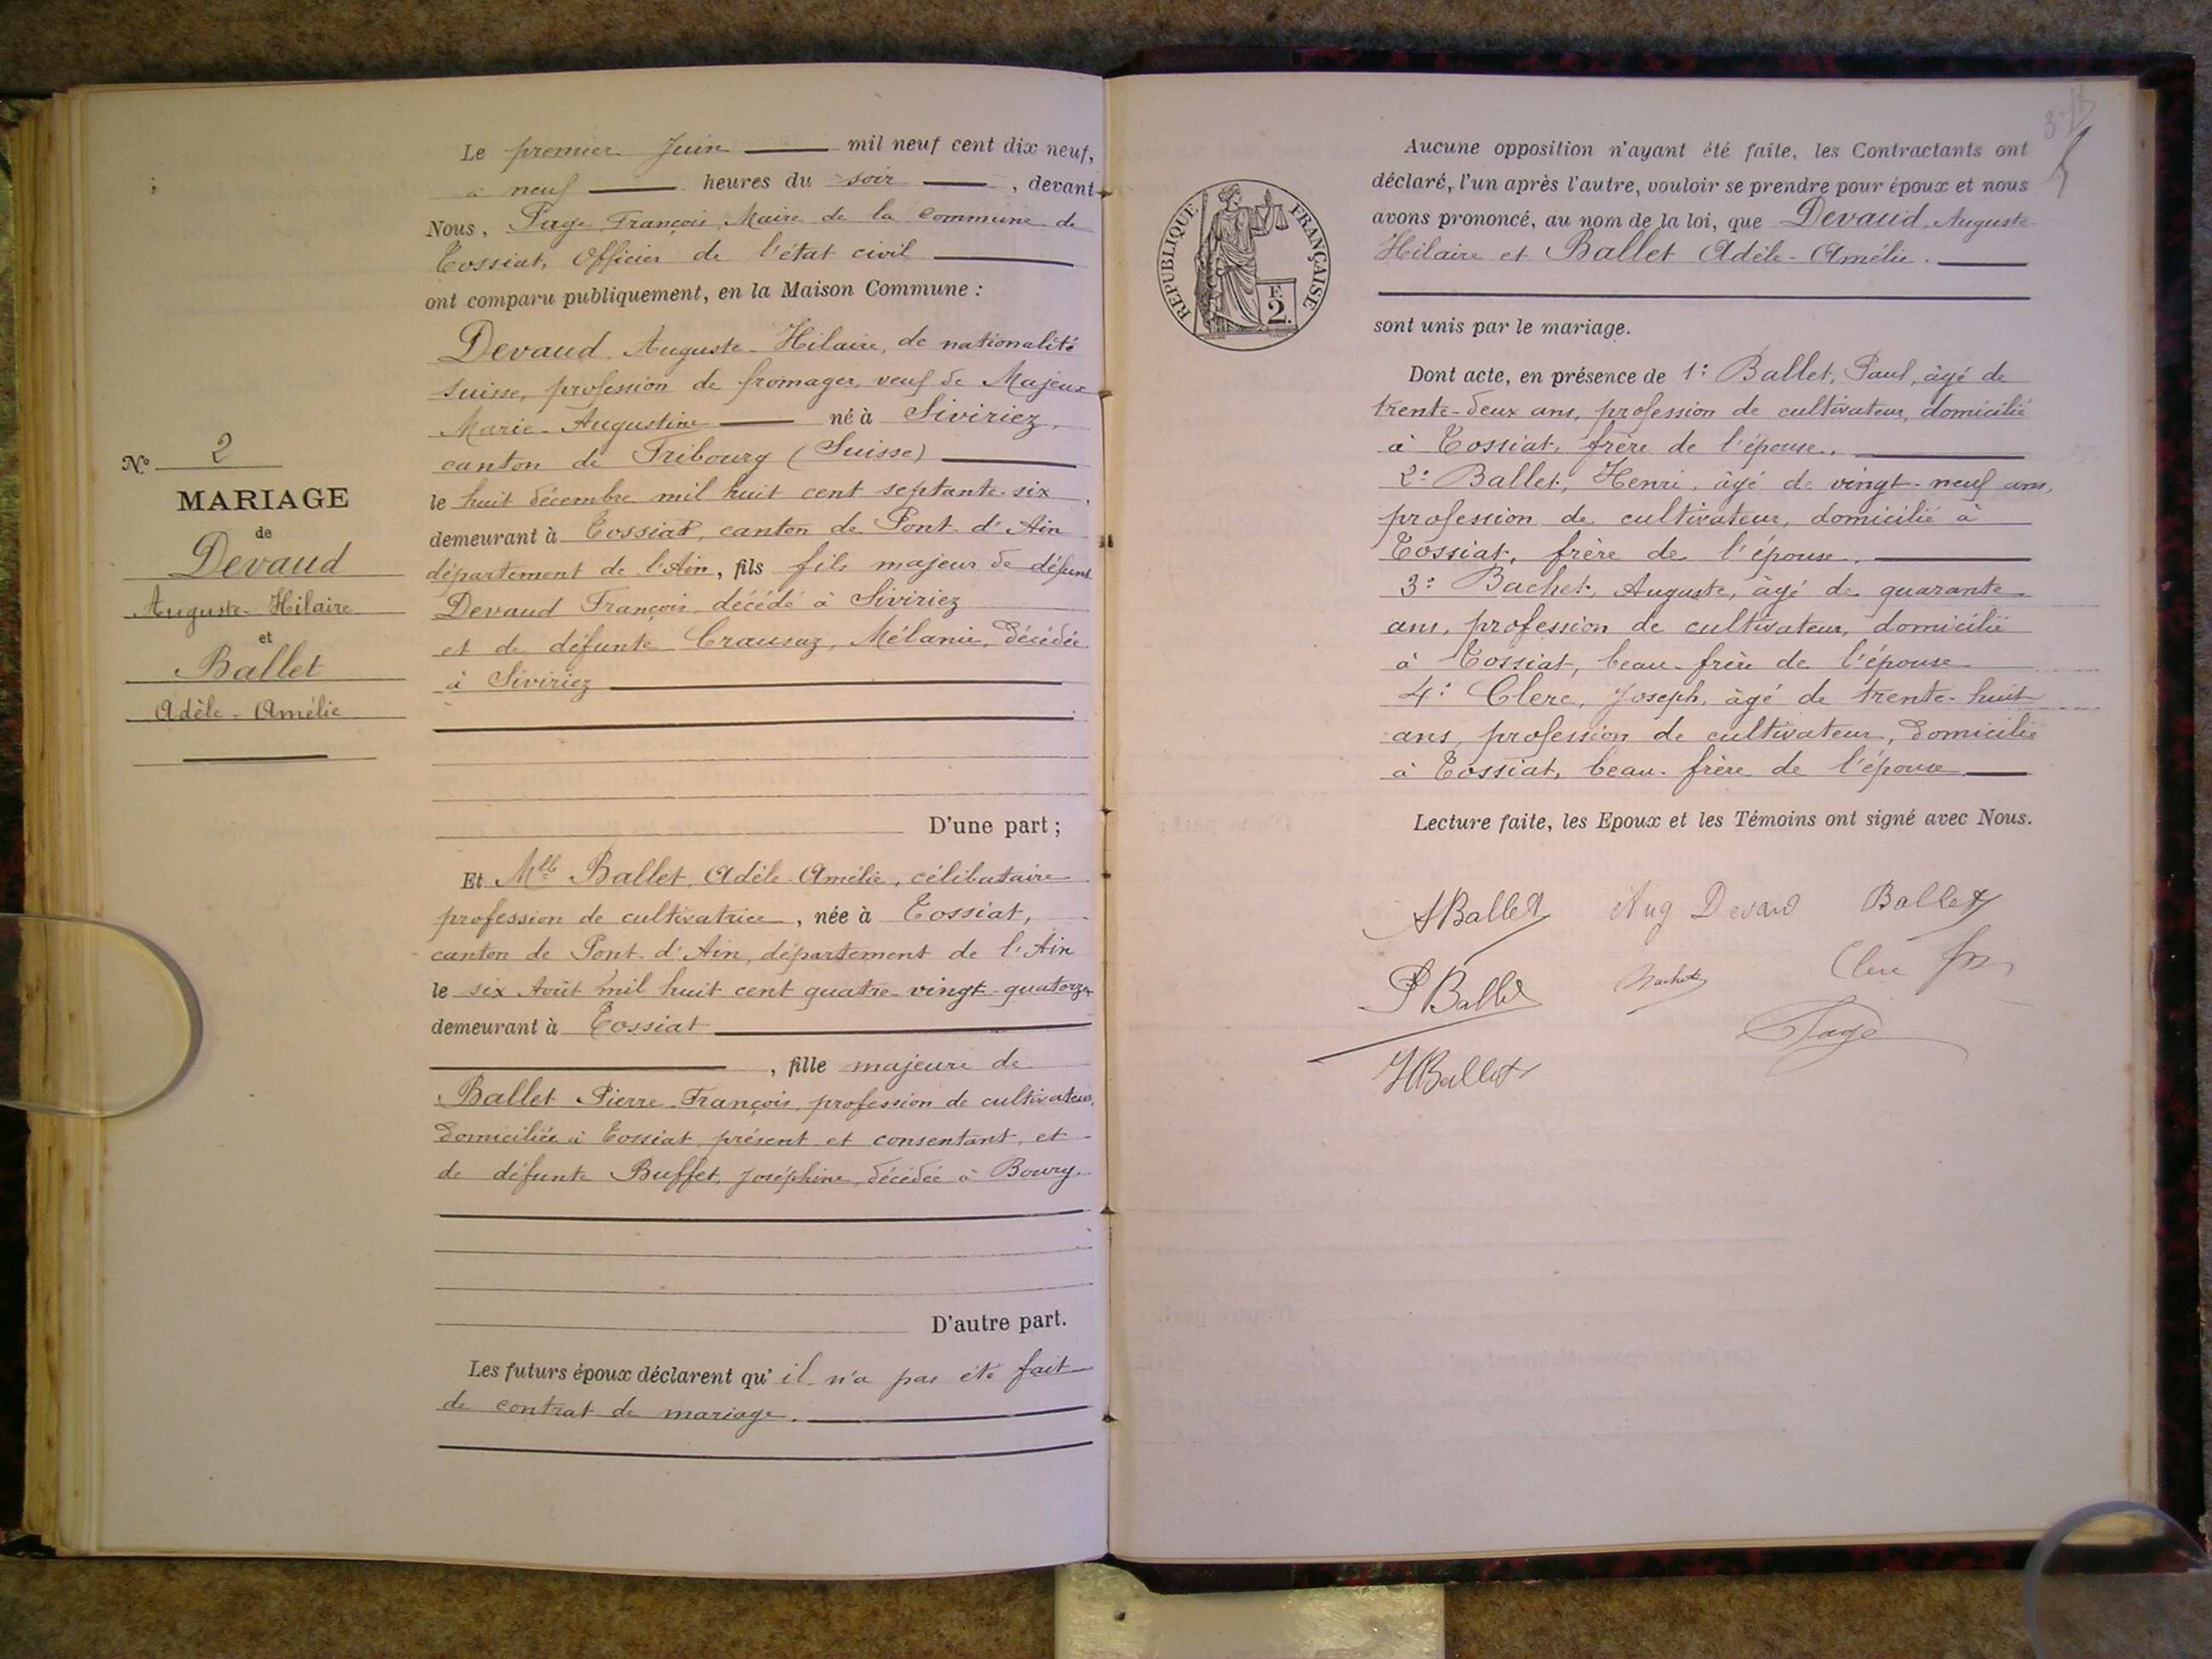 Le premier Juin mil neuf cent dix neuf,
à neuf heures du soir, devant
Nous, Page François, Maire de la Commune de
Tossiat, Officier de l'état civil
ont comparu publiquement, en la Maison Commune :
Devaud, Auguste-Hilaire, de nationalité
suisse, profession de fromager, veuf de Majeux
Marie-Augustine né à Siviriez,
canton de Fribourg (Suisse)
le huit décembre mil huit cent septante-six,
demeurant à Tossiat, canton de Pont-d'Ain
département de l'Ain, fils fils majeur de défunt
Devaud François décédé à Siviriez
et de défunte Crausaz, Mélanie, décédée
à Siviriez
D'une part ;
Et Mlle Ballet, Adèle-Amélie, célibataire
profession de cultivatrice, née à Tossiat,
canton de Pont-d'Ain, département de l'Ain
le six Août mil huit cent quatre-vingt-quatorze
demeurant à Tossiat
, fille majeure de
Ballet Pierre-François, profession de cultivateur,
domiciliés à Tossiat présent et consentant, et
de défunte Buffet, Joséphine, décédée à Bourg.
D'autre part.
Les futurs époux déclarent qu'il n'a pas été fait
de contrat de mariage.
N° 2
MARIAGE
de
Devaud
Auguste-Hilaire
et
Ballet
Adèle-Amélie
RÉPUBLIQUE FRANÇAISE
F.
2.
Aucune opposition n'ayant été faite, les Contractants ont
déclaré, l'un après l'autre, vouloir se prendre pour époux et nous
avons prononcé, au nom de la loi, que Devaud, Auguste-
Hilaire et Ballet Adèle-Amélie.
sont unis par le mariage.
Dont acte, en présence de 1° Ballet, Paul, âgé de
trente-deux ans, profession de cultivateur, domicilié
à Tossiat, frère de l'épouse.
2° Ballet, Henri, âgé de vingt-neuf ans,
profession de cultivateur, domicilié à
Tossiat, frère de l'épouse.
3° Bachet, Auguste, âgé de quarante
ans, profession de cultivateur, domicilié
à Tossiat, beau-frère de l'épouse
4° Clerc, Joseph, âgé de trente-huit
ans, profession de cultivateur, domicilié
à Tossiat, beau-frère de l'épouse
Lecture faite, les Epoux et les Témoins ont signé avec Nous.
A Ballet Aug Devaud Ballet
P Ballet Bachet Clerc
Page
H Ballet